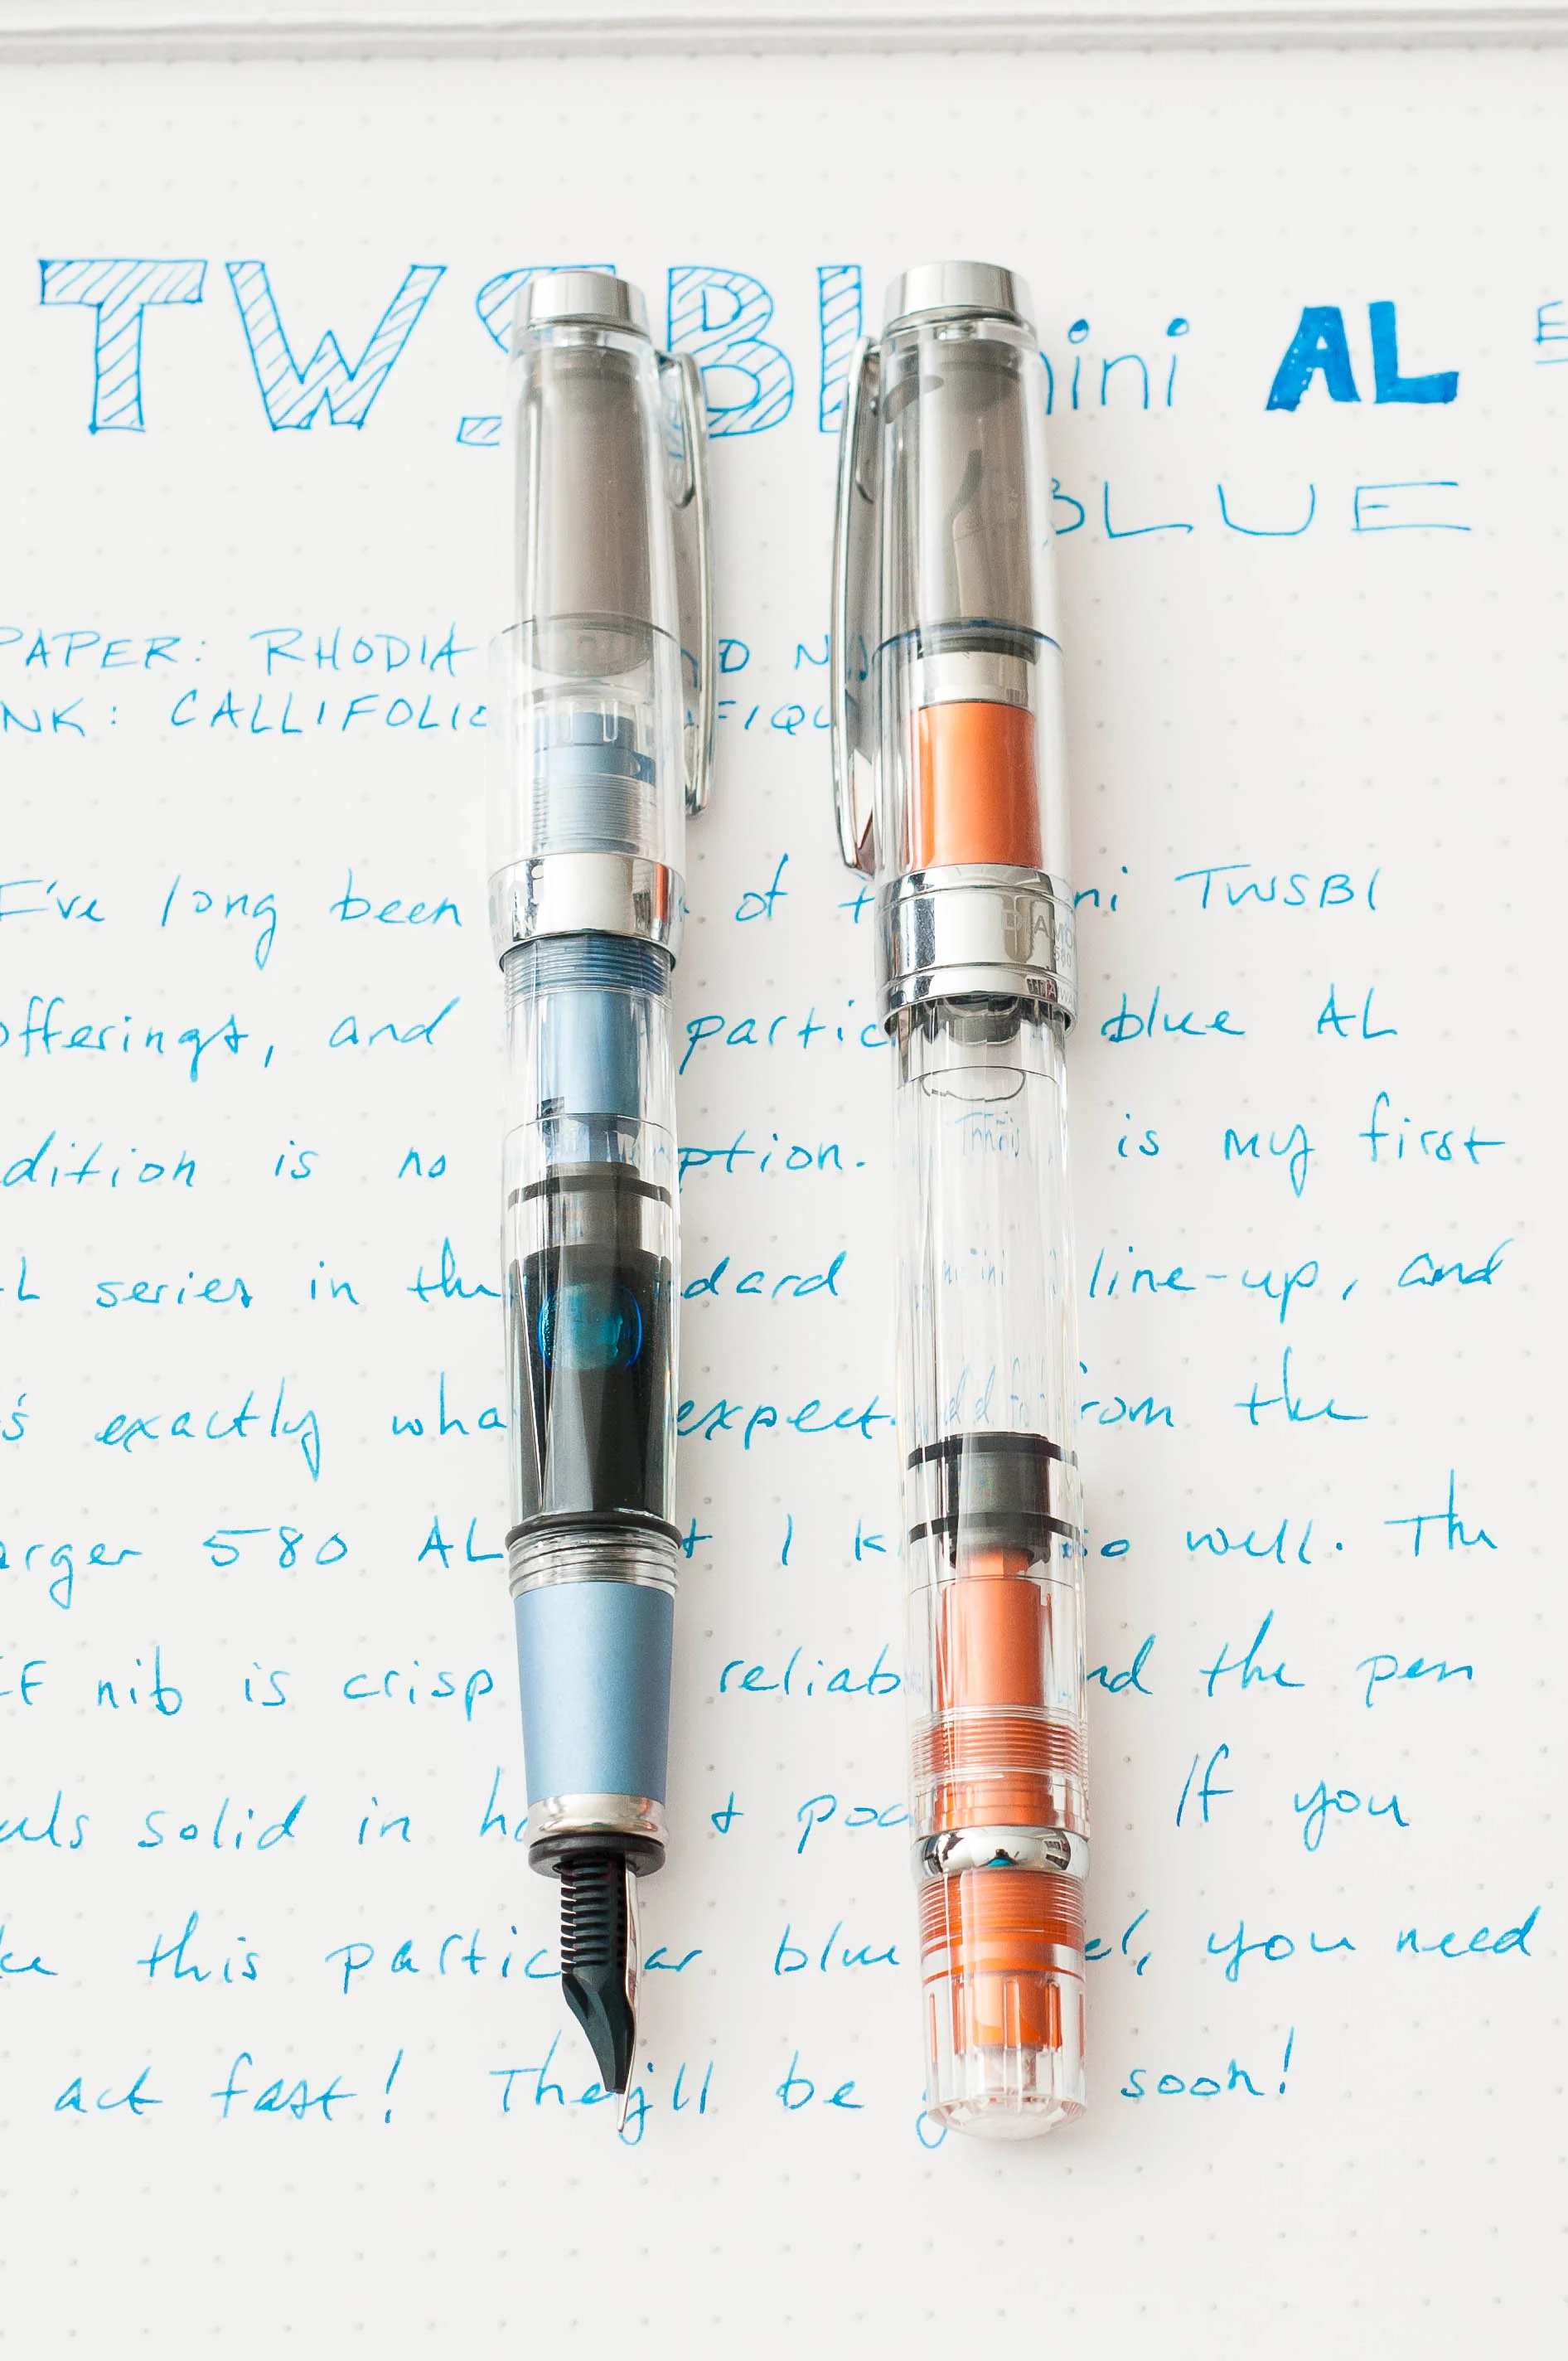 TWSBI mini AL
BLUE
PAPER: RHODIA
INK: CALLIFOLIO
I've long been of mini TWSBI
offerings, and partic blue AL
dition is no ption. is my first
L series in the dard line-up, and
's exactly what expect from the
arger 580 AL I so well. The
EF nib is crisp reliab and the pen
solid in & If you
this particular blue el, you need
act fast! They'll be soon!
DIAMO
580